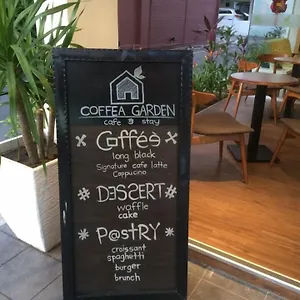 COFFEA GARDEN
cafe & stay
Cofféè
long black
Signature cafe latte
Cappucino
# DESSERT #
waffle
cake
* P@stRY *
croissant
spaghetti
burger
brunch